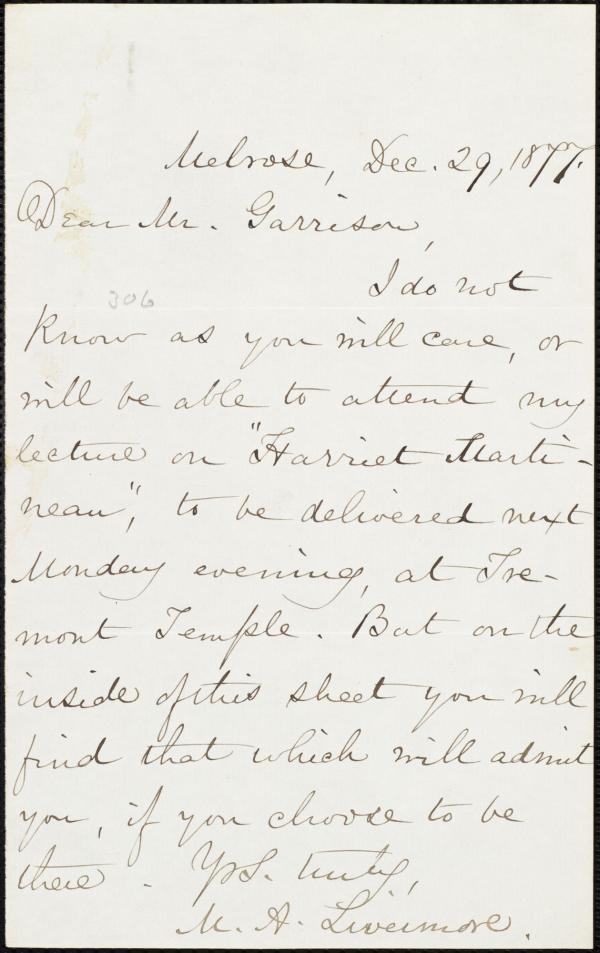 Melrose, Dec. 29, 1877.
Dear Mr. Garrison,
I do not
306
know as you will care, or
will be able to attend my
lecture on "Harriet Marti-
neau", to be delivered next
Monday evening, at Tre-
mont Temple. But on the
inside of this sheet you will
find that which will admit
you, if you choose to be
there. Yrs. truly,
M. A. Livermore.